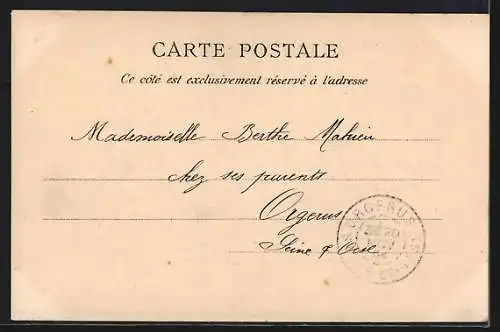 CARTE POSTALE
Ce côté est exclusivement réservé à l'adresse
Mademoiselle Berthe Mahieu
chez ses parents
Orgerus
Seine & Oise
ORGERUS